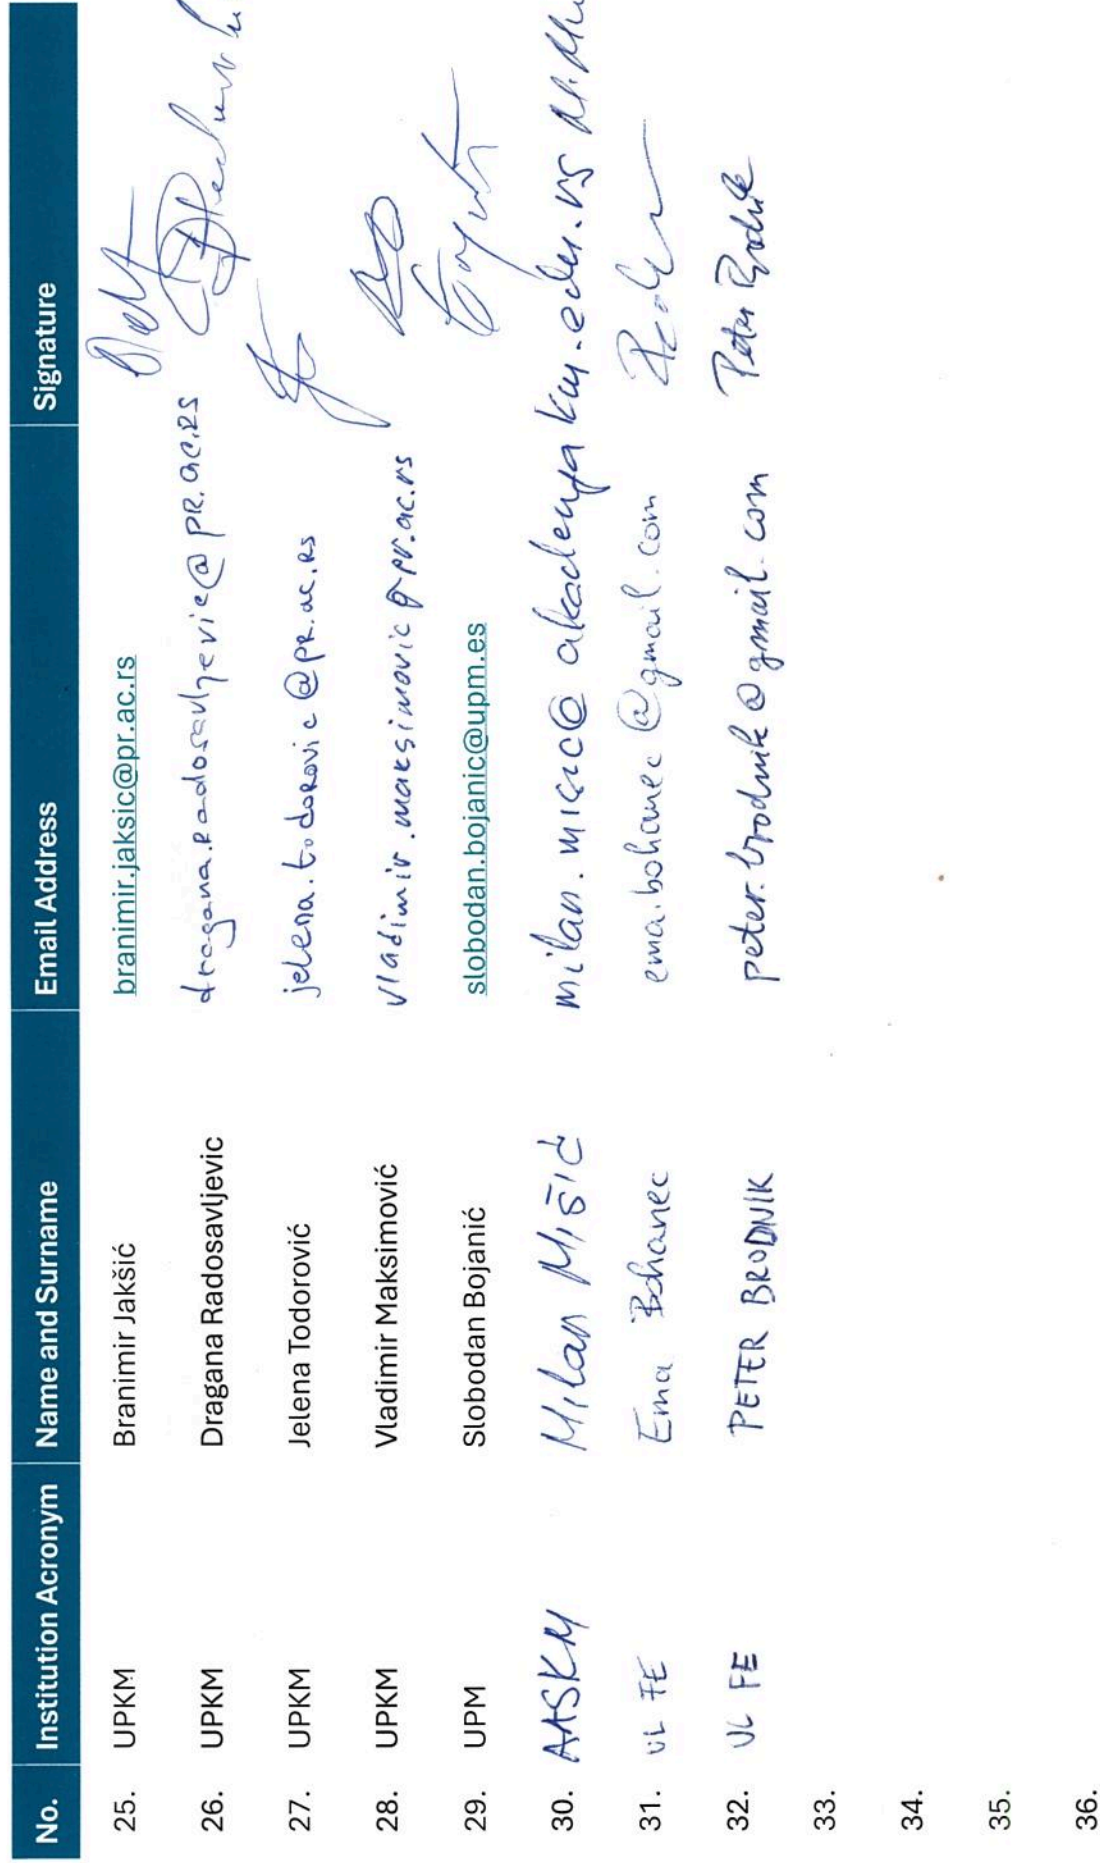 No. Institution Acronym Name and Surname Email Address Signature
25. UPKM Branimir Jakšić branimir.jaksic@pr.ac.rs
26. UPKM Dragana Radosavljevic dragana.radosavljevic@PR.ac.RS
27. UPKM Jelena Todorović jelena.todorovic@PR.ac.RS
28. UPKM Vladimir Maksimović vladimir.maksimovic@pr.ac.rs
29. UPM Slobodan Bojanić slobodan.bojanic@upm.es
30. AASKM Milan Mišić milan.misic@akademijakm.edu.rs
31. UL FE Ema Bohanec ema.bohanec@gmail.com
32. UL FE PETER BRODNIK peter.brodnik@gmail.com Peter Brodnik
33.
34.
35.
36.